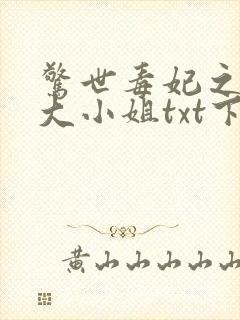 惊世毒妃之
大小姐txt下
黄山山山山